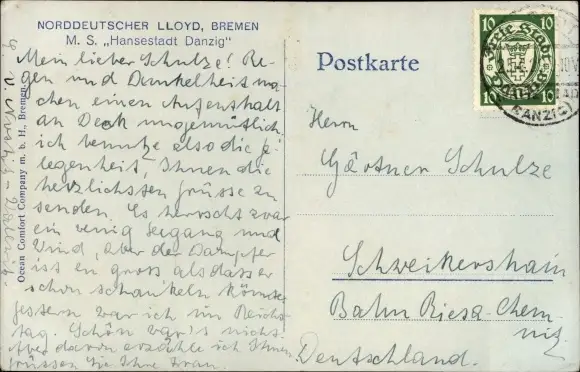 NORDDEUTSCHER LLOYD, BREMEN
M. S. „Hansestadt Danzig"
Mein lieber Schulze! Re-
gen und Dunkelheit ma-
chen einen Aufenthalt
an Deck ungemütlich.
ich benutze also die je-
legenheit, Ihnen die
herzlichsten Grüsse zu
senden. Es herrscht zwar
ein wenig Seegang und
Wind, aber der Dampfer
ist en gross als dass er
schon schaukeln könnte
gestern war ich im Reichs-
tag. Schön war's nicht.
Aber davon erzähle ich Ihnen
grüssen Sie Ihre Frau.
Ocean Comfort Company m. b. H., Bremen
Postkarte
10 10
10 10
DANZIG
Herrn
Gärtner Schulze
Schweikershain
Bahn Riesa-Chem-
nitz
Deutschland.